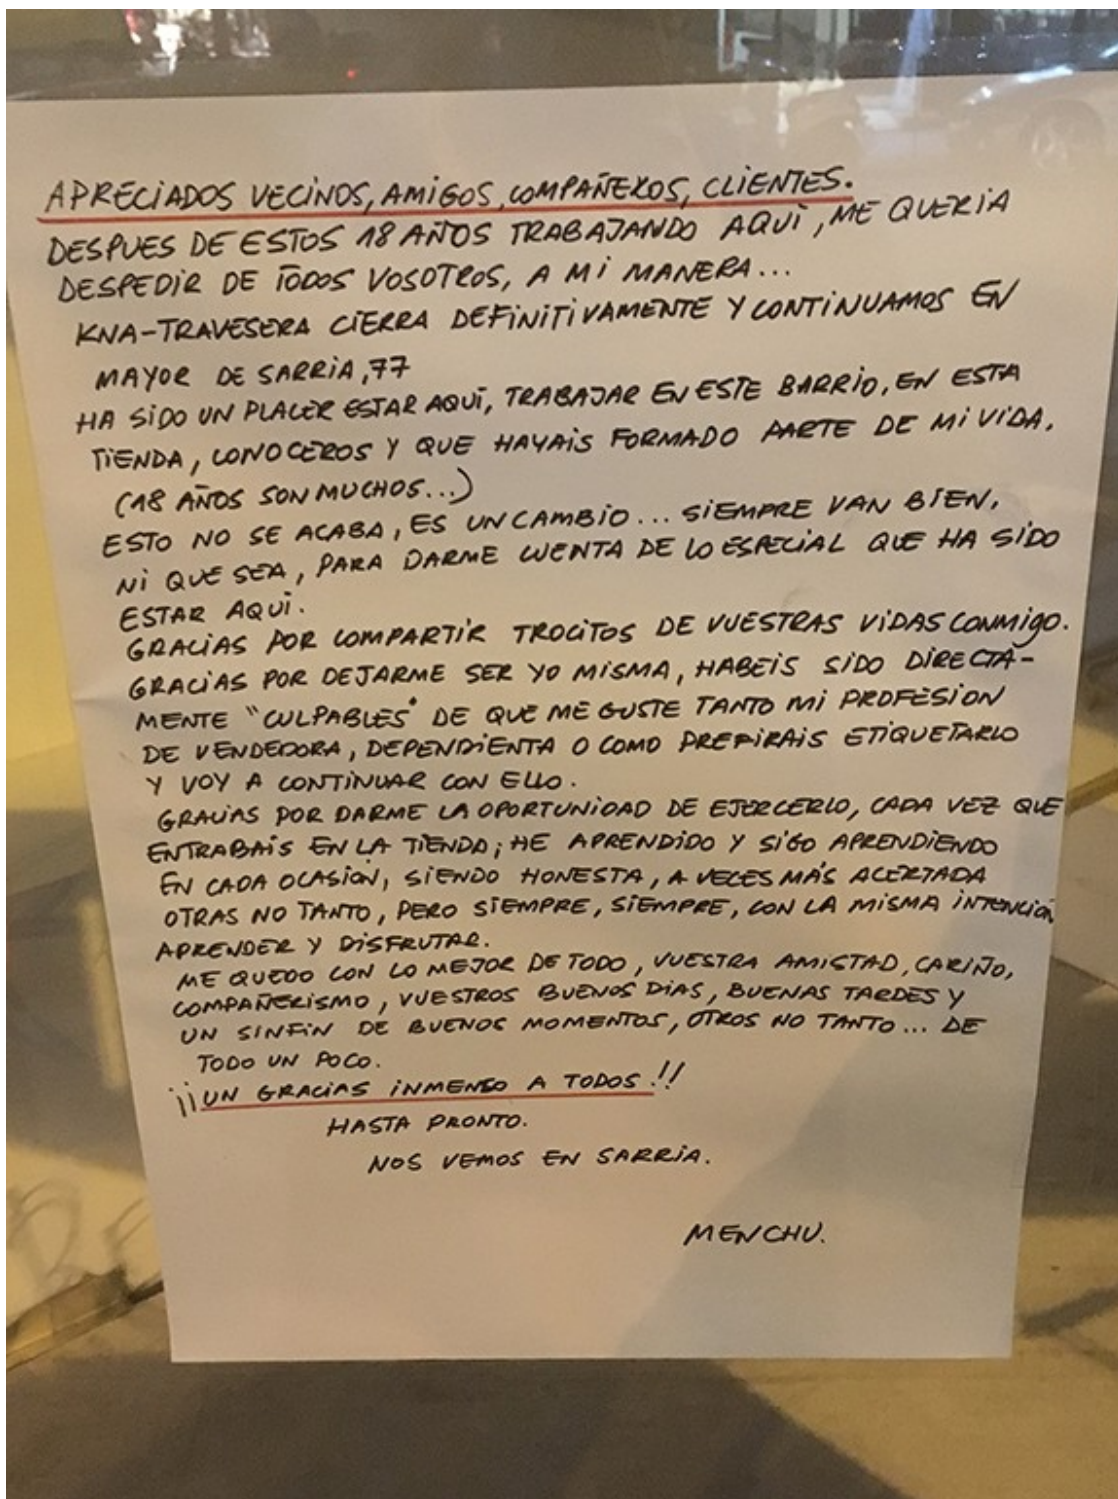 APRECIADOS VECINOS, AMIGOS, COMPAÑEROS, CLIENTES.
DESPUES DE ESTOS 18 AÑOS TRABAJANDO AQUÍ, ME QUERIA
DESPEDIR DE TODOS VOSOTROS, A MI MANERA...
KNA-TRAVESERA CIERRA DEFINITIVAMENTE Y CONTINUAMOS EN
MAYOR DE SARRIA, 77
HA SIDO UN PLACER ESTAR AQUÍ, TRABAJAR EN ESTE BARRIO, EN ESTA
TIENDA, CONOCEROS Y QUE HAYAIS FORMADO PARTE DE MI VIDA.
(18 AÑOS SON MUCHOS...)
ESTO NO SE ACABA, ES UN CAMBIO... SIEMPRE VAN BIEN,
NI QUE SEA, PARA DARME CUENTA DE LO ESPECIAL QUE HA SIDO
ESTAR AQUÍ.
GRACIAS POR COMPARTIR TROCITOS DE VUESTRAS VIDAS CONMIGO.
GRACIAS POR DEJARME SER YO MISMA, HABEIS SIDO DIRECTA-
MENTE "CULPABLES" DE QUE ME GUSTE TANTO MI PROFESION
DE VENDEDORA, DEPENDIENTA O COMO PREFIRAIS ETIQUETARLO
Y VOY A CONTINUAR CON ELLO.
GRACIAS POR DARME LA OPORTUNIDAD DE EJERCERLO, CADA VEZ QUE
ENTRABAIS EN LA TIENDA; HE APRENDIDO Y SIGO APRENDIENDO
EN CADA OCASIÓN, SIENDO HONESTA, A VECES MÁS ACERTADA
OTRAS NO TANTO, PERO SIEMPRE, SIEMPRE, CON LA MISMA INTENCIÓN
APRENDER Y DISFRUTAR.
ME QUEDO CON LO MEJOR DE TODO, VUESTRA AMISTAD, CARIÑO,
COMPAÑERISMO, VUESTROS BUENOS DÍAS, BUENAS TARDES Y
UN SINFÍN DE BUENOS MOMENTOS, OTROS NO TANTO... DE
TODO UN POCO.
¡¡UN GRACIAS INMENSO A TODOS.!!
HASTA PRONTO.
NOS VEMOS EN SARRIA.
MENCHU.